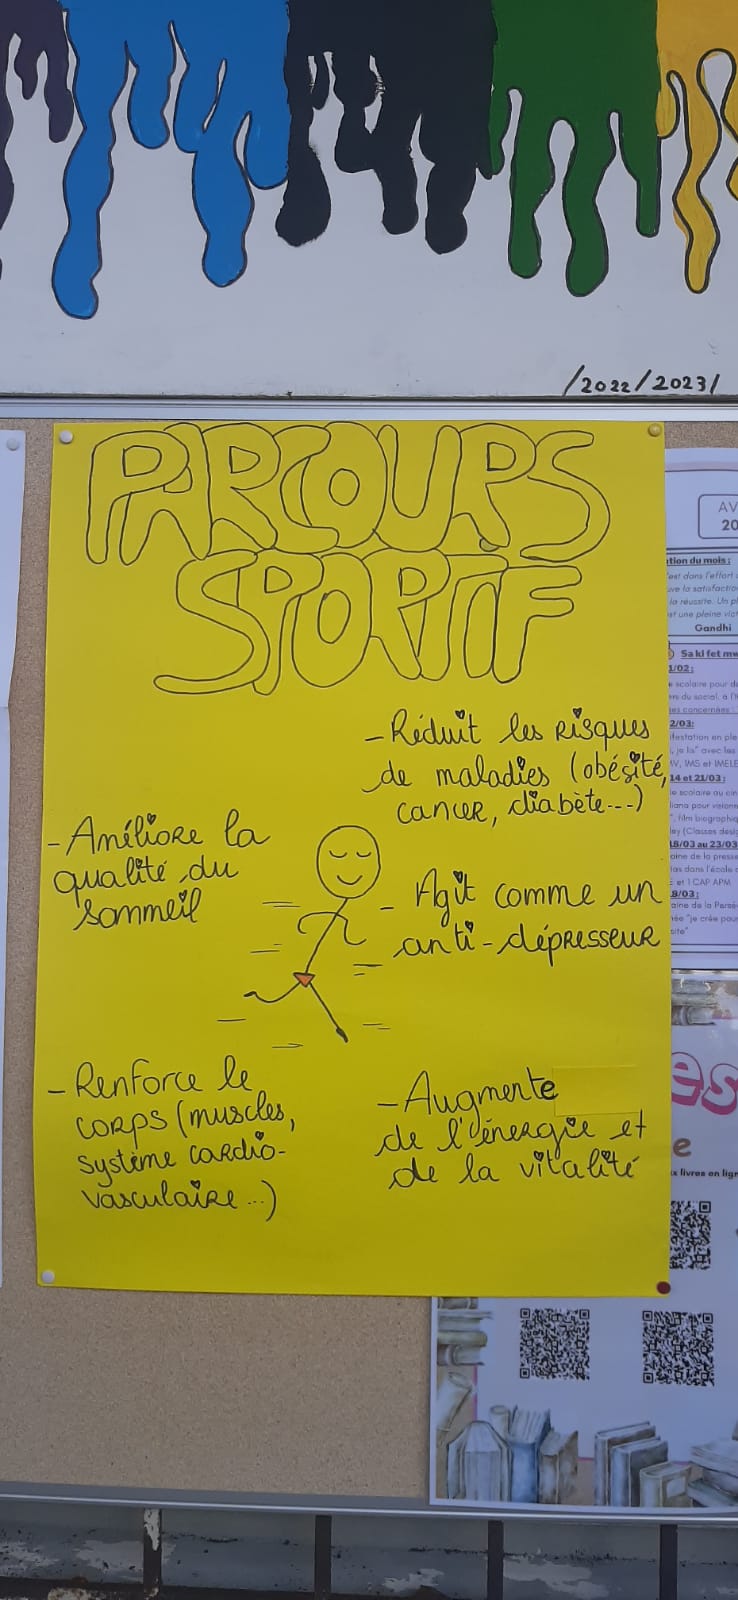 /2022/2023/
PARCOURS
SPORTIF
- Réduit les risques
de maladies (obésité,
cancer, diabète...)
- Améliore la
qualité du
sommeil
- Agit comme un
anti-dépresseur
- Renforce le
corps (muscles,
système cardio-
vasculaire...)
- Augmente
de l'énergie et
de la vitalité
AV
20
tion du mois :
est dans l'effort
ve la satisfaction
la réussite. Un pl
st une pleine vic
Gandhi
Sa ki fet mw
1/02 :
scolaire pour
du social, à l'
es concernées :
2/03:
festation en ple
je lis" avec les
V, IMS et IMELE
14 et 21/03 :
e scolaire au cin
film biographiq
ley (Classes dési
18/03 au 23/03
aine de la presse
das dans l'école
E et 1 CAP APM
8/03:
aine de la Persé
ée "je crée pou
site"
es
e
x livres en lign